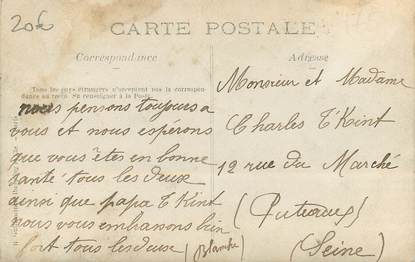 20€
CARTE POSTALE
Correspondance
Adresse
Tous les pays étrangers n'acceptent pas la correspon-
dance au recto. Se renseigner à la Poste.
nous pensons toujours a
vous et nous espérons
que vous êtes en bonne
santé tous les deux
ainsi que papa T'Kint
nous vous embrassons bien
fort tous les deux (Blanche)
Monsieur et Madame
Charles T'Kint
12 rue du Marché
(Puteaux)
(Seine)